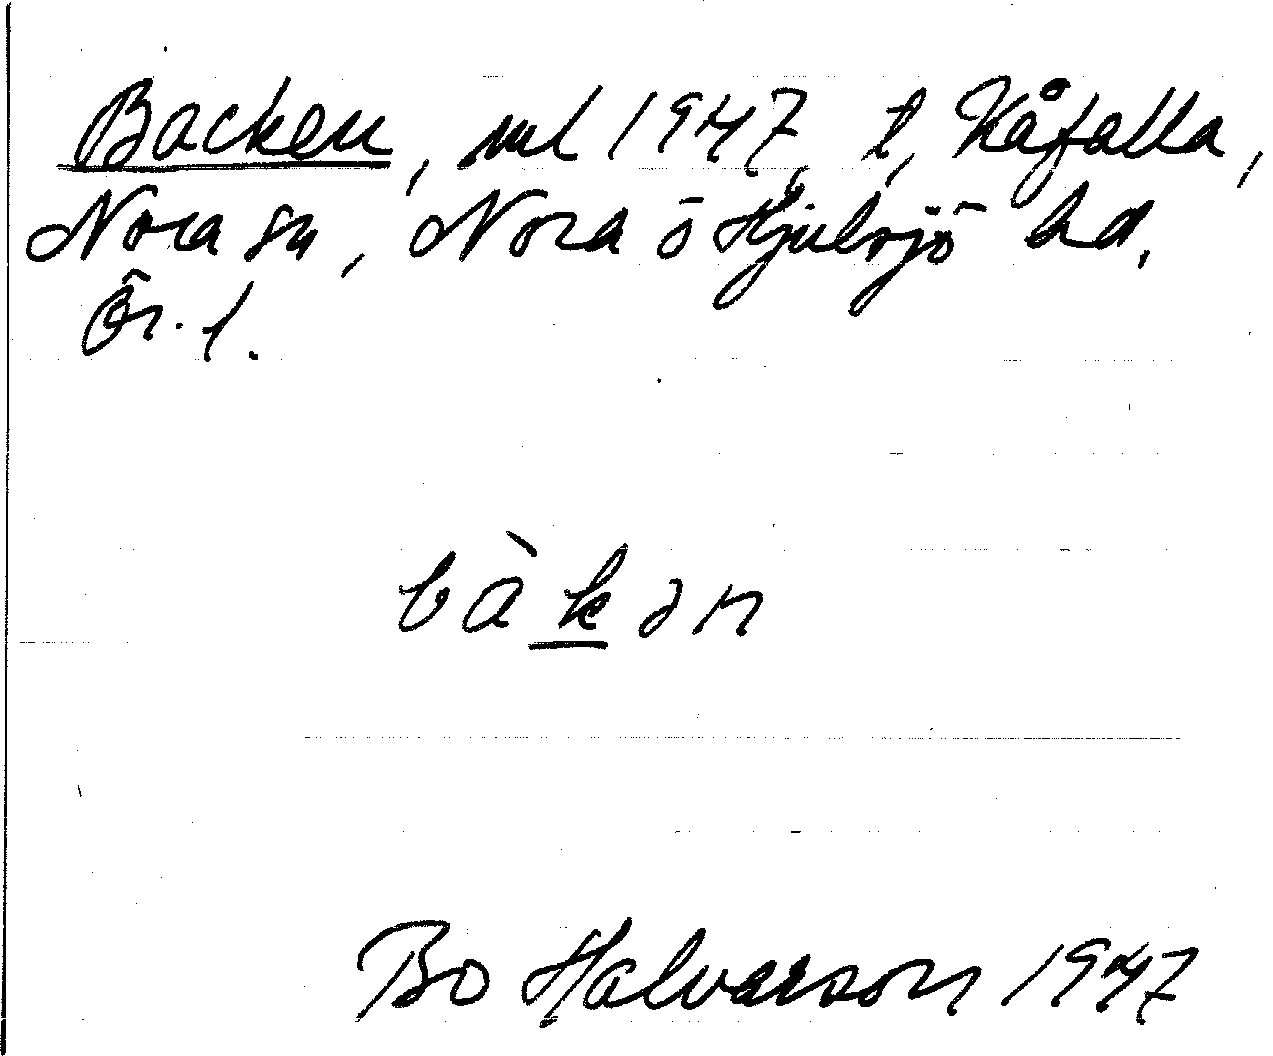 Backen, nvl 1947, t, Kåfalla,
Nora sn, Nora ö Hjulsjö hd,
Ör. l.
bàkən
Bo Halvarson 1947